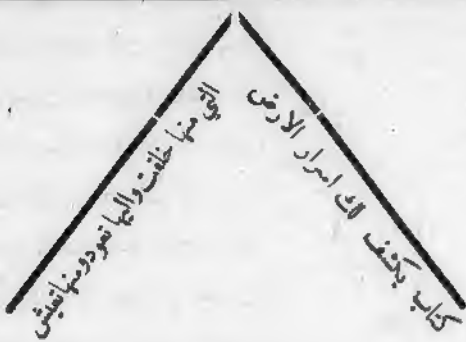 كتاب يكشف لك اسرار الارض
التي منها خلقت واليها تعود ومنها تعيش